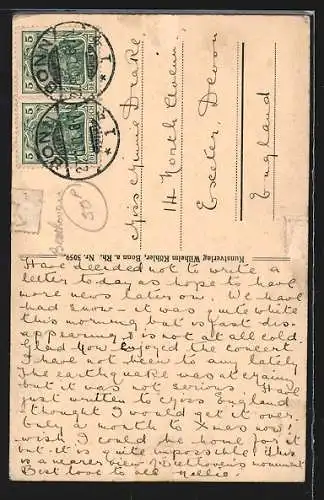 BONN
BONN
5
5
5
5
Miss Minnie Drake,
14 North
Exeter, Devon
England
Kunstverlag Wilhelm Köhler, Bonn a. Rh. Nr. 3059.
Beethoven
50 P
Have decided not to write a
letter today as hope to have
more news later on. We have
had snow - it was quite white
this morning but is fast dis-
appearing, it is not at all cold
Glad you enjoyed the concert.
I have not been to any lately
The earthquake was at
but it was not serious. Have
just written to Miss England
thought I would get it over.
Only a month to Xmas now! I
wish I could be home for it
but it is quite impossible. This
is a nearer view of Beethoven's monument
Best love to all. Nellie.